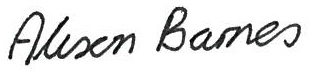 Alison Barnes